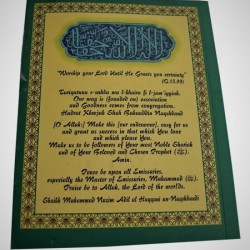 "Worship your Lord Until He Grants you certainty"
(Q.15.99)
Tariqatuna s-sohba wa l-khairu fi l-jam'iyyah.
Our way is (founded on) association
and Goodness comes from congregation.
Hadrat Khwajah Shah Bahauddin Naqshbandi
(O Allah!) Make this [our endeavour], may for us
and grant us success in that which You love
and which please You.
Make us to be followers of Your most Noble Shariah
and of Your Beloved and Chosen Prophet (ﷺ).
Amin.
Peace be upon all Emissaries,
especially the Master of Emissaries, Muhammed (ﷺ).
Praise be to Allah, the Lord of the worlds.
Shaikh Muhammed Nazim Adil al Haqqani an-Naqshbandi